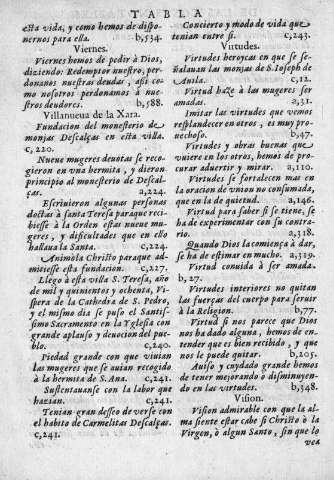 TABLA
esta vida, y como hemos de dispo-
nernos para ella. b,534.
Viernes.
Viernes hemos de pedir à Dios,
diziendo: Redemptor nuestro, per-
donanos nuestras deudas, assi co-
mo nosotros perdonamos à nue-
stros deudores. b,588.
Villanueua de la Xara.
Fundacion del monesterio de
monjas Descalças en esta villa.
c, 220.
Nueue mugeres deuotas se reco-
gieron en vna hermita, y dieron
principio al monesterio de Descal-
ças. a,224.
Escriuieron algunas personas
doctas à santa Teresa paraque reci-
biesse à la Orden estas nueue mu-
geres, y dificultades que en ello
hallaua la Santa. c,224.
Animòla Christo paraque ad-
mitiesse esta fundacion. c,227.
Llego à esta villa S. Teresa, año
de mil y quinientos y ochenta, Vi-
spera de la Cathedra de S. Pedro,
y el mismo dia se puso el Santis-
simo Sacramento en la Yglesia con
grande aplauso y deuocion del pue-
blo. c,240.
Piedad grande con que viuian
las mugeres que se auian recogido
à la hermita de S. Ana. c,241.
Sustentauanse con la labor que
hazian. c,241.
Tenian gran desseo de verse con
el habito de Carmelitas Descalças.
c,241.
Concierto y modo de vida que
tenian entre si. c,243.
Virtudes.
Virtudes heroycas en que se se-
ñalauan las monjas de S. Joseph de
Auila. c,12.
Virtud haze à las mugeres ser
amadas. a,31.
Imitar las virtudes que vemos
resplandecer en otros, es muy pro-
uechoso. b,47.
Virtudes y obras buenas que
vuiere en los otros, hemos de pro-
curar aduertir y mirar. a,110.
Virtudes se fortalecen mas en
la oracion de vnion no consumada,
que en la de quietud. a,146.
Virtud para saber si se tiene, se
ha de experimentar con su contra-
rio. a,318.
Quando Dios la comiença à dar,
se ha de estimar en mucho. a,319.
Virtud conuida à ser amada.
b, 27.
Virtudes interiores no quitan
las fuerças del cuerpo para seruir
à la Religion. b,77.
Virtud si nos parece que Dios
nos ha dado alguna, hemos de en-
tender que es bien recibido, y que
nos le puede quitar. b,205.
Auiso y cuydado grande hemos
de tener mejorando o disminuyen-
do en las virtudes. b,348.
Vision.
Vision admirable con que la al-
ma siente estar cabe si Christo ò la
Virgen, ò algun Santo, sin que lo
vea